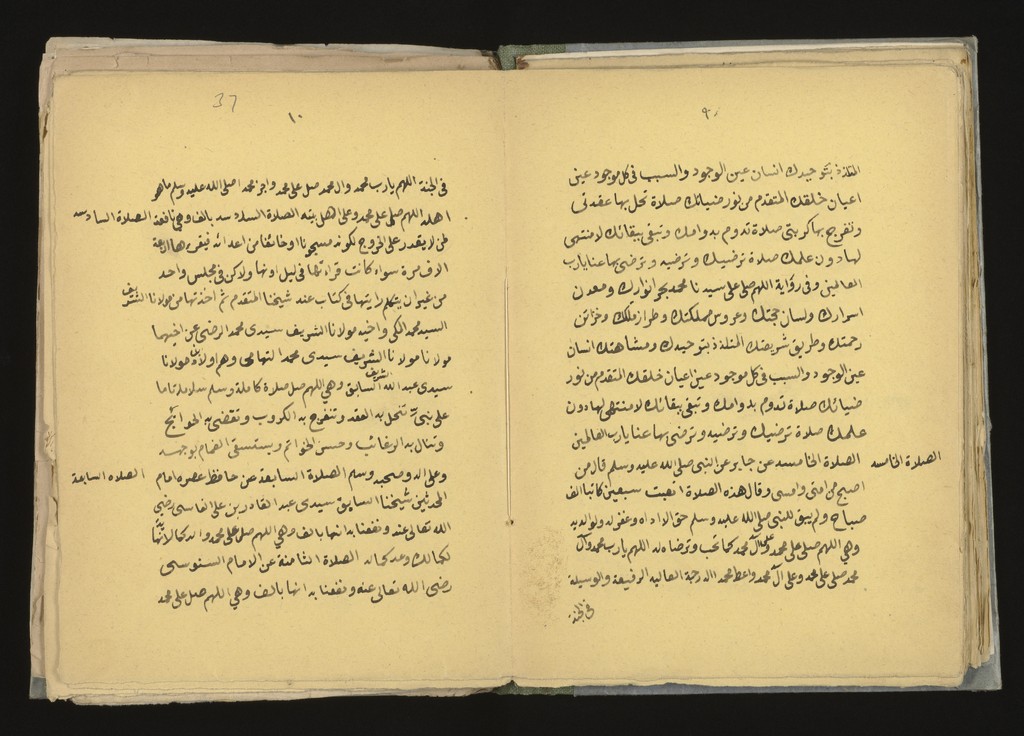 ٩
المتلذذ بتوحيدك انسان عين الوجود والسبب في كل موجود عين
اعيان خلقك المتقدم من نور ضيائك صلاة تحل بها عقدتي
وتفرج بها كربتي صلاة تدوم بدوامك وتبقى ببقائك لا منتهى
لها دون علمك صلاة ترضيك وترضيه وترضى بها عنا يارب
العالمين وفي رواية اللهم صل على سيدنا محمد بحر انوارك ومعدن
اسرارك ولسان حجتك وعروس مملكتك وطراز ملكك وخزائن
رحمتك وطريق شريعتك المتلذذ بتوحيدك ومشاهدتك انسان
عين الوجود والسبب في كل موجود عين اعيان خلقك المتقدم من نور
ضيائك صلاة تدوم بدوامك وتبقى ببقائك لا منتهى لها دون
علمك صلاة ترضيك وترضيه وترضى بها عنا يارب العالمين
الصلاة الخامسه
الصلاة الخامسه عن جابر عن النبي صلى الله عليه وسلم قال من
اصبح من امتي وامسى وقال هذه الصلاة اتعبت سبعين كاتبا الف
صباح ولم يبق للنبي صلى الله عليه وسلم حق الا اداه وغفر له ولوالديه
وهي اللهم صلى على محمد وعلى آل محمد كما تحب وترضاه له اللهم يارب محمد وآل
محمد صلى على محمد وعلى آل محمد واعط محمدا الدرجة العاليه الرفيعة والوسيلة
في الجنة
37
١٠
في الجنة اللهم يارب محمد وال محمد صل على محمد واجز محمدا صلى الله عليه وسلم ما هو
اهله اللهم صلى على محمد وعلى اهل بيته الصلاة السادسه بالف وهي نافعة
الصلاة السادسه
لمن لا يقدر على الخروج لكونه مسجونا او خائفا من اعدائه فيقرءها اربعة
الاف مرة سواء كانت قراءتها في ليل او نهار لكن في مجلس واحد
من غير ان يتكلم رايتها في كتاب عند شيخنا المتقدم ثم اخذتها من مولانا الشريف
السيد محمد المكي واخيه مولانا الشريف سيدي محمد الرضي عن اخيهما
مولانا مولانا الشريف سيدي محمد التهامي وهم اولاد مولانا
سيدي عبد الله الشريف السابق وهي اللهم صل صلاة كاملة وسلم سلاما تاما
على نبي تنحل به العقد وتنفرج به الكروب وتقضى به الحوائج
وتنال به الرغائب وحسن الخواتم ويستسقى الغمام بوجهه
وعلى اله وصحبه وسلم الصلاة السابعة عن حافظ عصره امام
الصلاه السابعة
المحدثين شيخنا السابق سيدي عبد القادر بن علي الفاسي رضي
الله تعالى عنه ونفعنا به انها بالف وهي اللهم صل على محمد واله كما لا نهاية
لكمالك وعد كماله الصلاة الثامنة عن الامام السنوسي
رضي الله تعالى عنه ونفعنا به انها بالف وهي اللهم صل على محمد